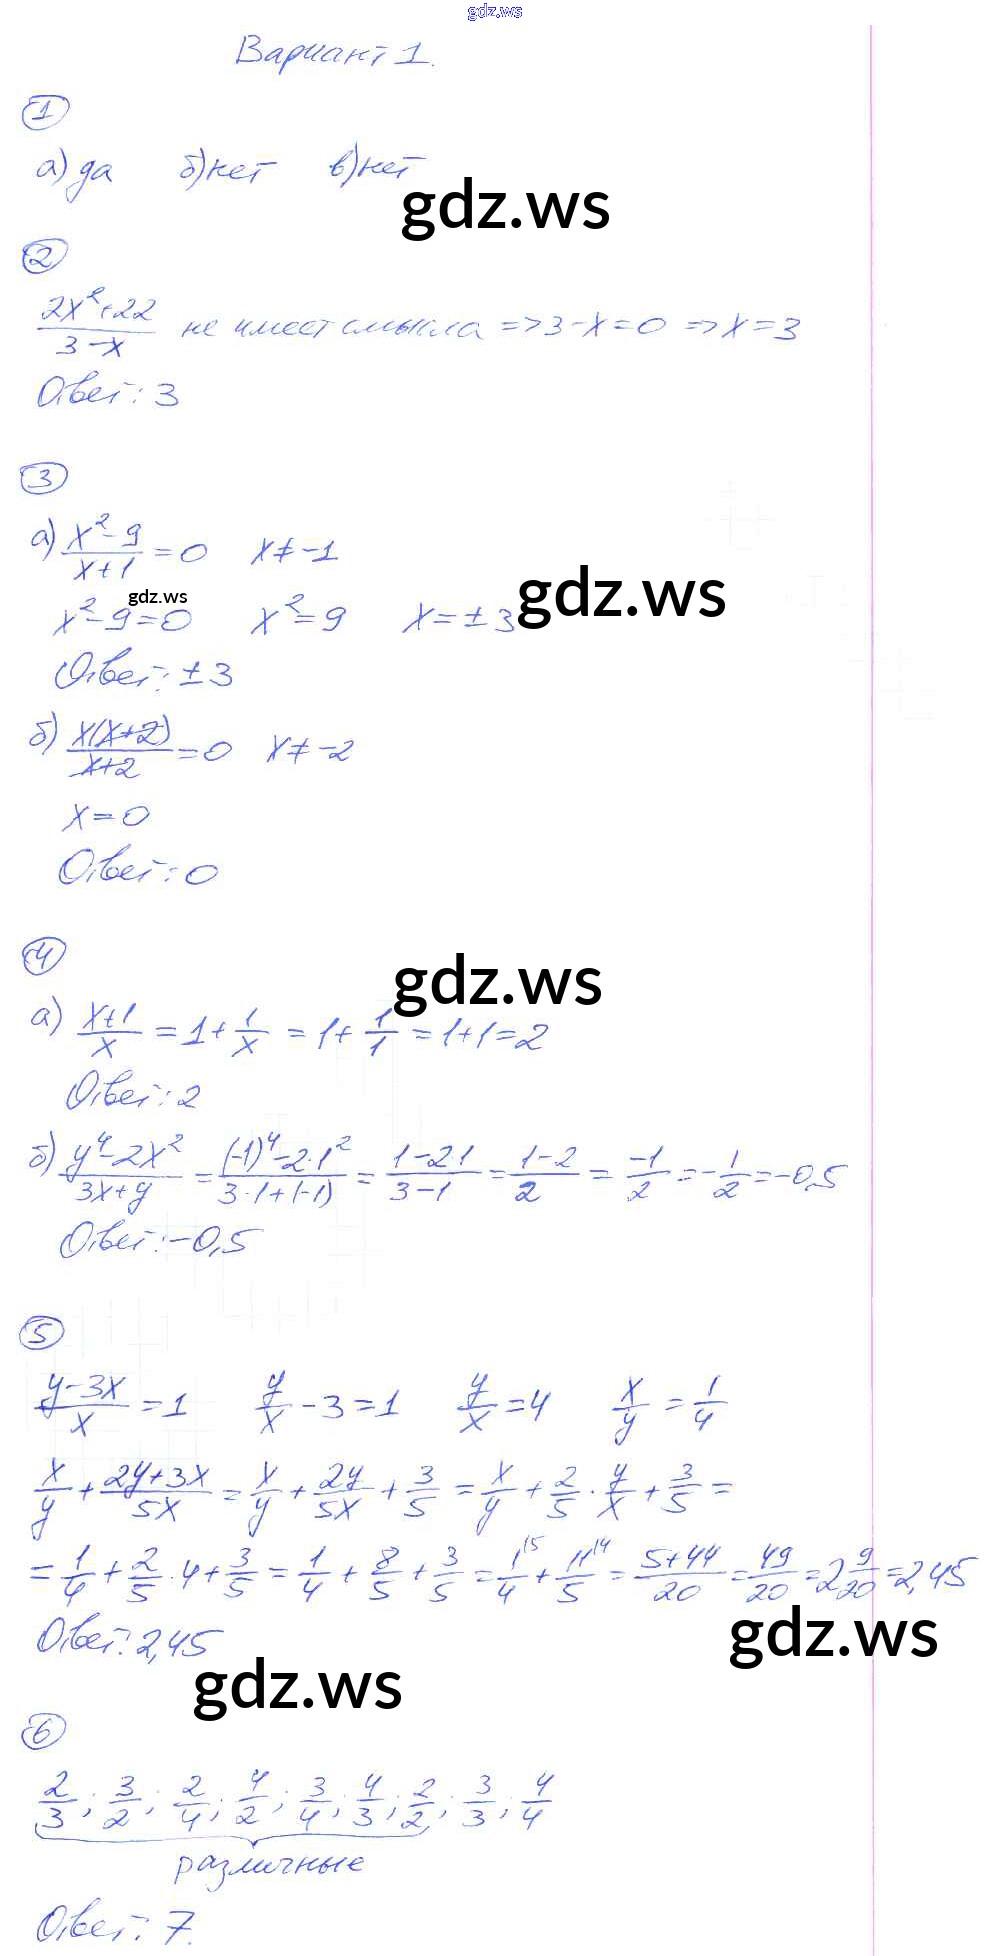 gdz.ws
Вариант 1.
1
а) да б) нет в) нет
gdz.ws
2
(2x²+22)/(3-x) не имеет смысла => 3-x=0 => x=3
Ответ: 3
3
а) (x²-9)/(x+1) = 0 x≠-1
gdz.ws
gdz.ws
x²-9=0 x²=9 x=±3
Ответ: ±3
б) x(x+2)/(x+2) = 0 x≠-2
x=0
Ответ: 0
4
gdz.ws
а) (x+1)/x = 1+1/x = 1+1/1 = 1+1=2
Ответ: 2
б) (y⁴-2x²)/(3x+y) = ((-1)⁴-2·1²)/(3·1+(-1)) = (1-2·1)/(3-1) = (1-2)/2 = -1/2 = -1/2 = -0,5
Ответ: -0,5
5
(y-3x)/x = 1 y/x - 3 = 1 y/x = 4 x/y = 1/4
x/y + (2y+3x)/5x = x/y + 2y/5x + 3/5 = x/y + 2/5 · y/x + 3/5 =
= 1/4 + 2/5 · 4 + 3/5 = 1/4 + 8/5 + 3/5 = 1/4 ⁽⁵ + 11/5 ⁽⁴ = (5+44)/20 = 49/20 = 2 9/20 = 2,45
Ответ: 2,45
gdz.ws
gdz.ws
6
2/3; 3/2; 2/4; 4/2; 3/4; 4/3; 2/2; 3/3; 4/4
различные
Ответ: 7.